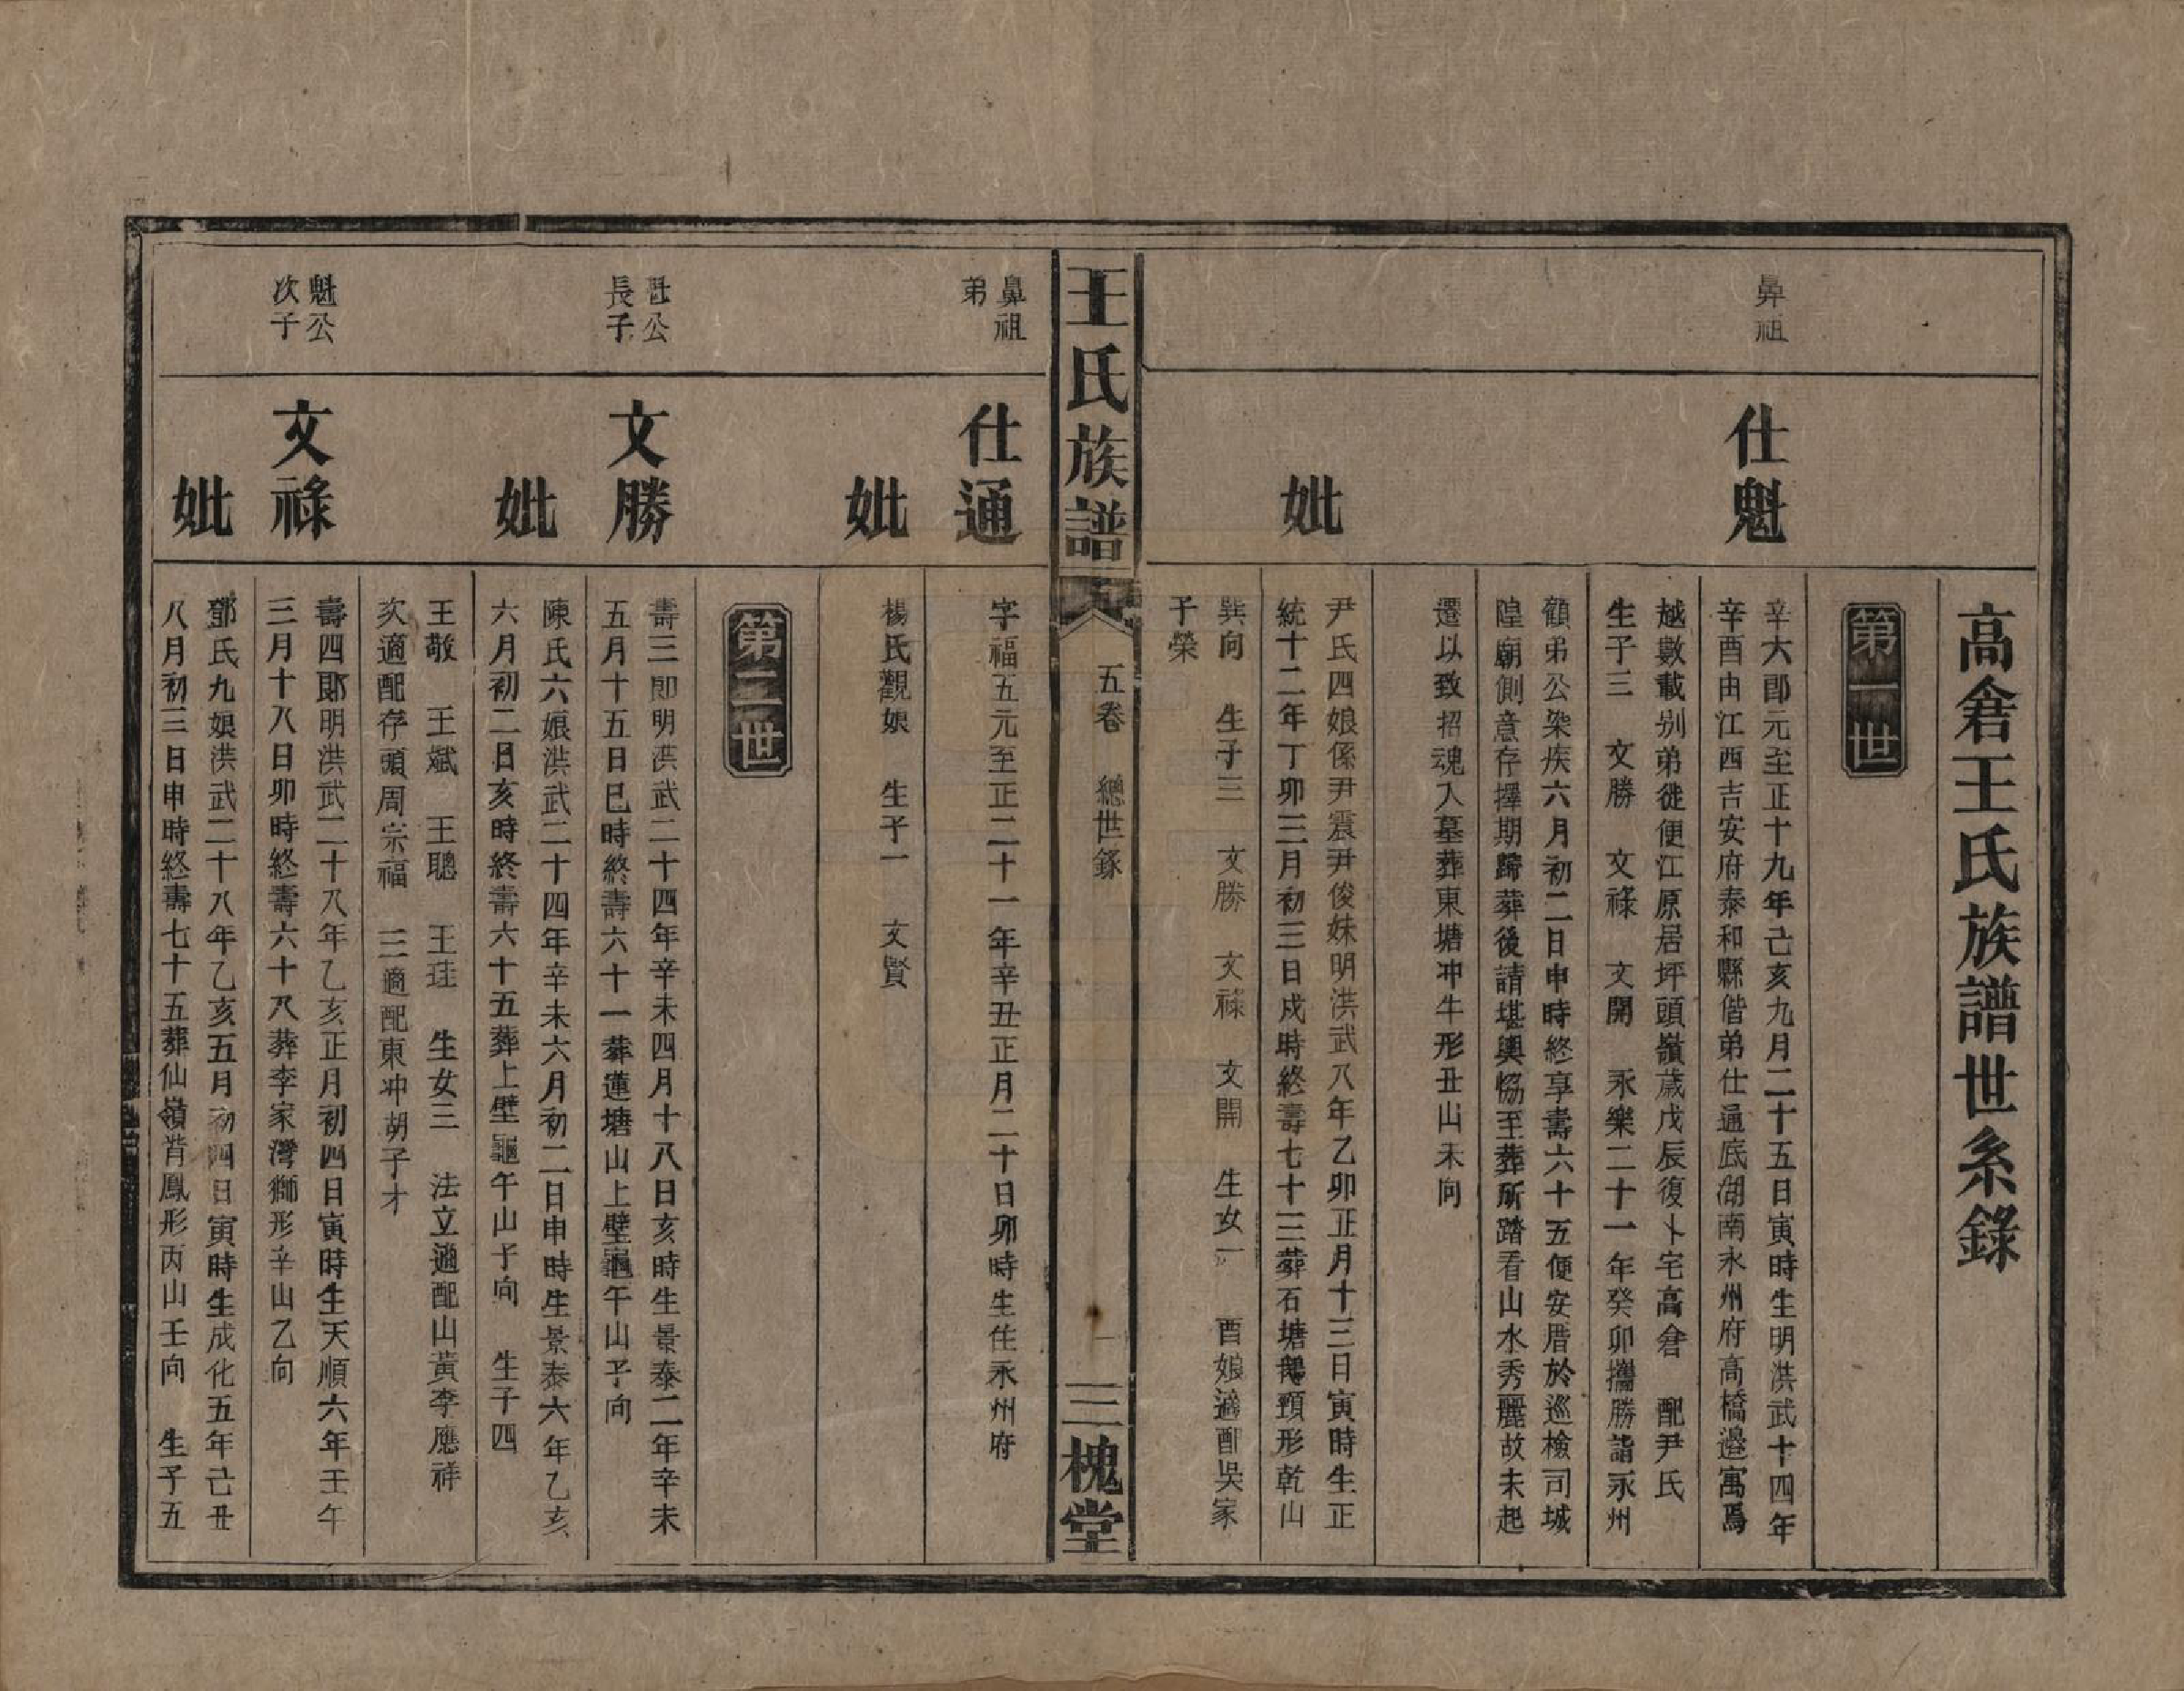 高倉王氏族譜世系錄
第一世
鼻祖
仕魁
辛大郎元至正十九年己亥九月二十五日寅時生明洪武十四年
辛酉由江西吉安府泰和縣偕弟仕通底湖南永州府高橋邉寓焉
越數載别弟徙便江原居坪頭嶺歲戊辰復卜宅高倉　配尹氏
生子三　文勝　文祿　文開　永樂二十一年癸卯攜勝詣永州
顧弟公染疾六月初二日申時終享壽六十五便安厝於巡檢司城
隍廟側意存擇期歸葬後請堪輿恊至葬所踏看山水秀麗故未起
遷以致招魂入墓葬東塘冲牛形丑山未向
妣
尹氏四娘係尹震尹俊妹明洪武八年乙卯正月十三日寅時生正
統十二年丁卯三月初三日戌時終壽七十三葬石塘鵝頸形乾山
巽向　生子三　文勝　文祿　文開　生女一　酉娘適配吳家
子榮
王氏族譜
五卷　總世錄
一
三槐堂
鼻祖
弟
仕通
字福五元至正二十一年辛丑正月二十日卯時生住永州府
妣
楊氏觀娘　生子一　文賢
第二世
魁公
長子
文勝
壽三郎明洪武二十四年辛未四月十八日亥時生景泰二年辛未
五月十五日巳時終壽六十一葬蓮塘山上壁龜午山子向
妣
陳氏六娘洪武二十四年辛未六月初二日申時生景泰六年乙亥
六月初二日亥時終壽六十五葬上壁龜午山子向　生子四
王敬　王斌　王聰　王珪　生女三　法立適配山黃李應祥
次適配存頭周宗福　三適配東冲胡子才
魁公
次子
文祿
壽四郎明洪武二十八年乙亥正月初四日寅時生天順六年壬午
三月十八日卯時終壽六十八葬李家灣獅形辛山乙向
妣
鄧氏九娘洪武二十八年乙亥五月初四日寅時生成化五年己丑
八月初三日申時終壽七十五葬仙嶺背鳳形丙山壬向　生子五